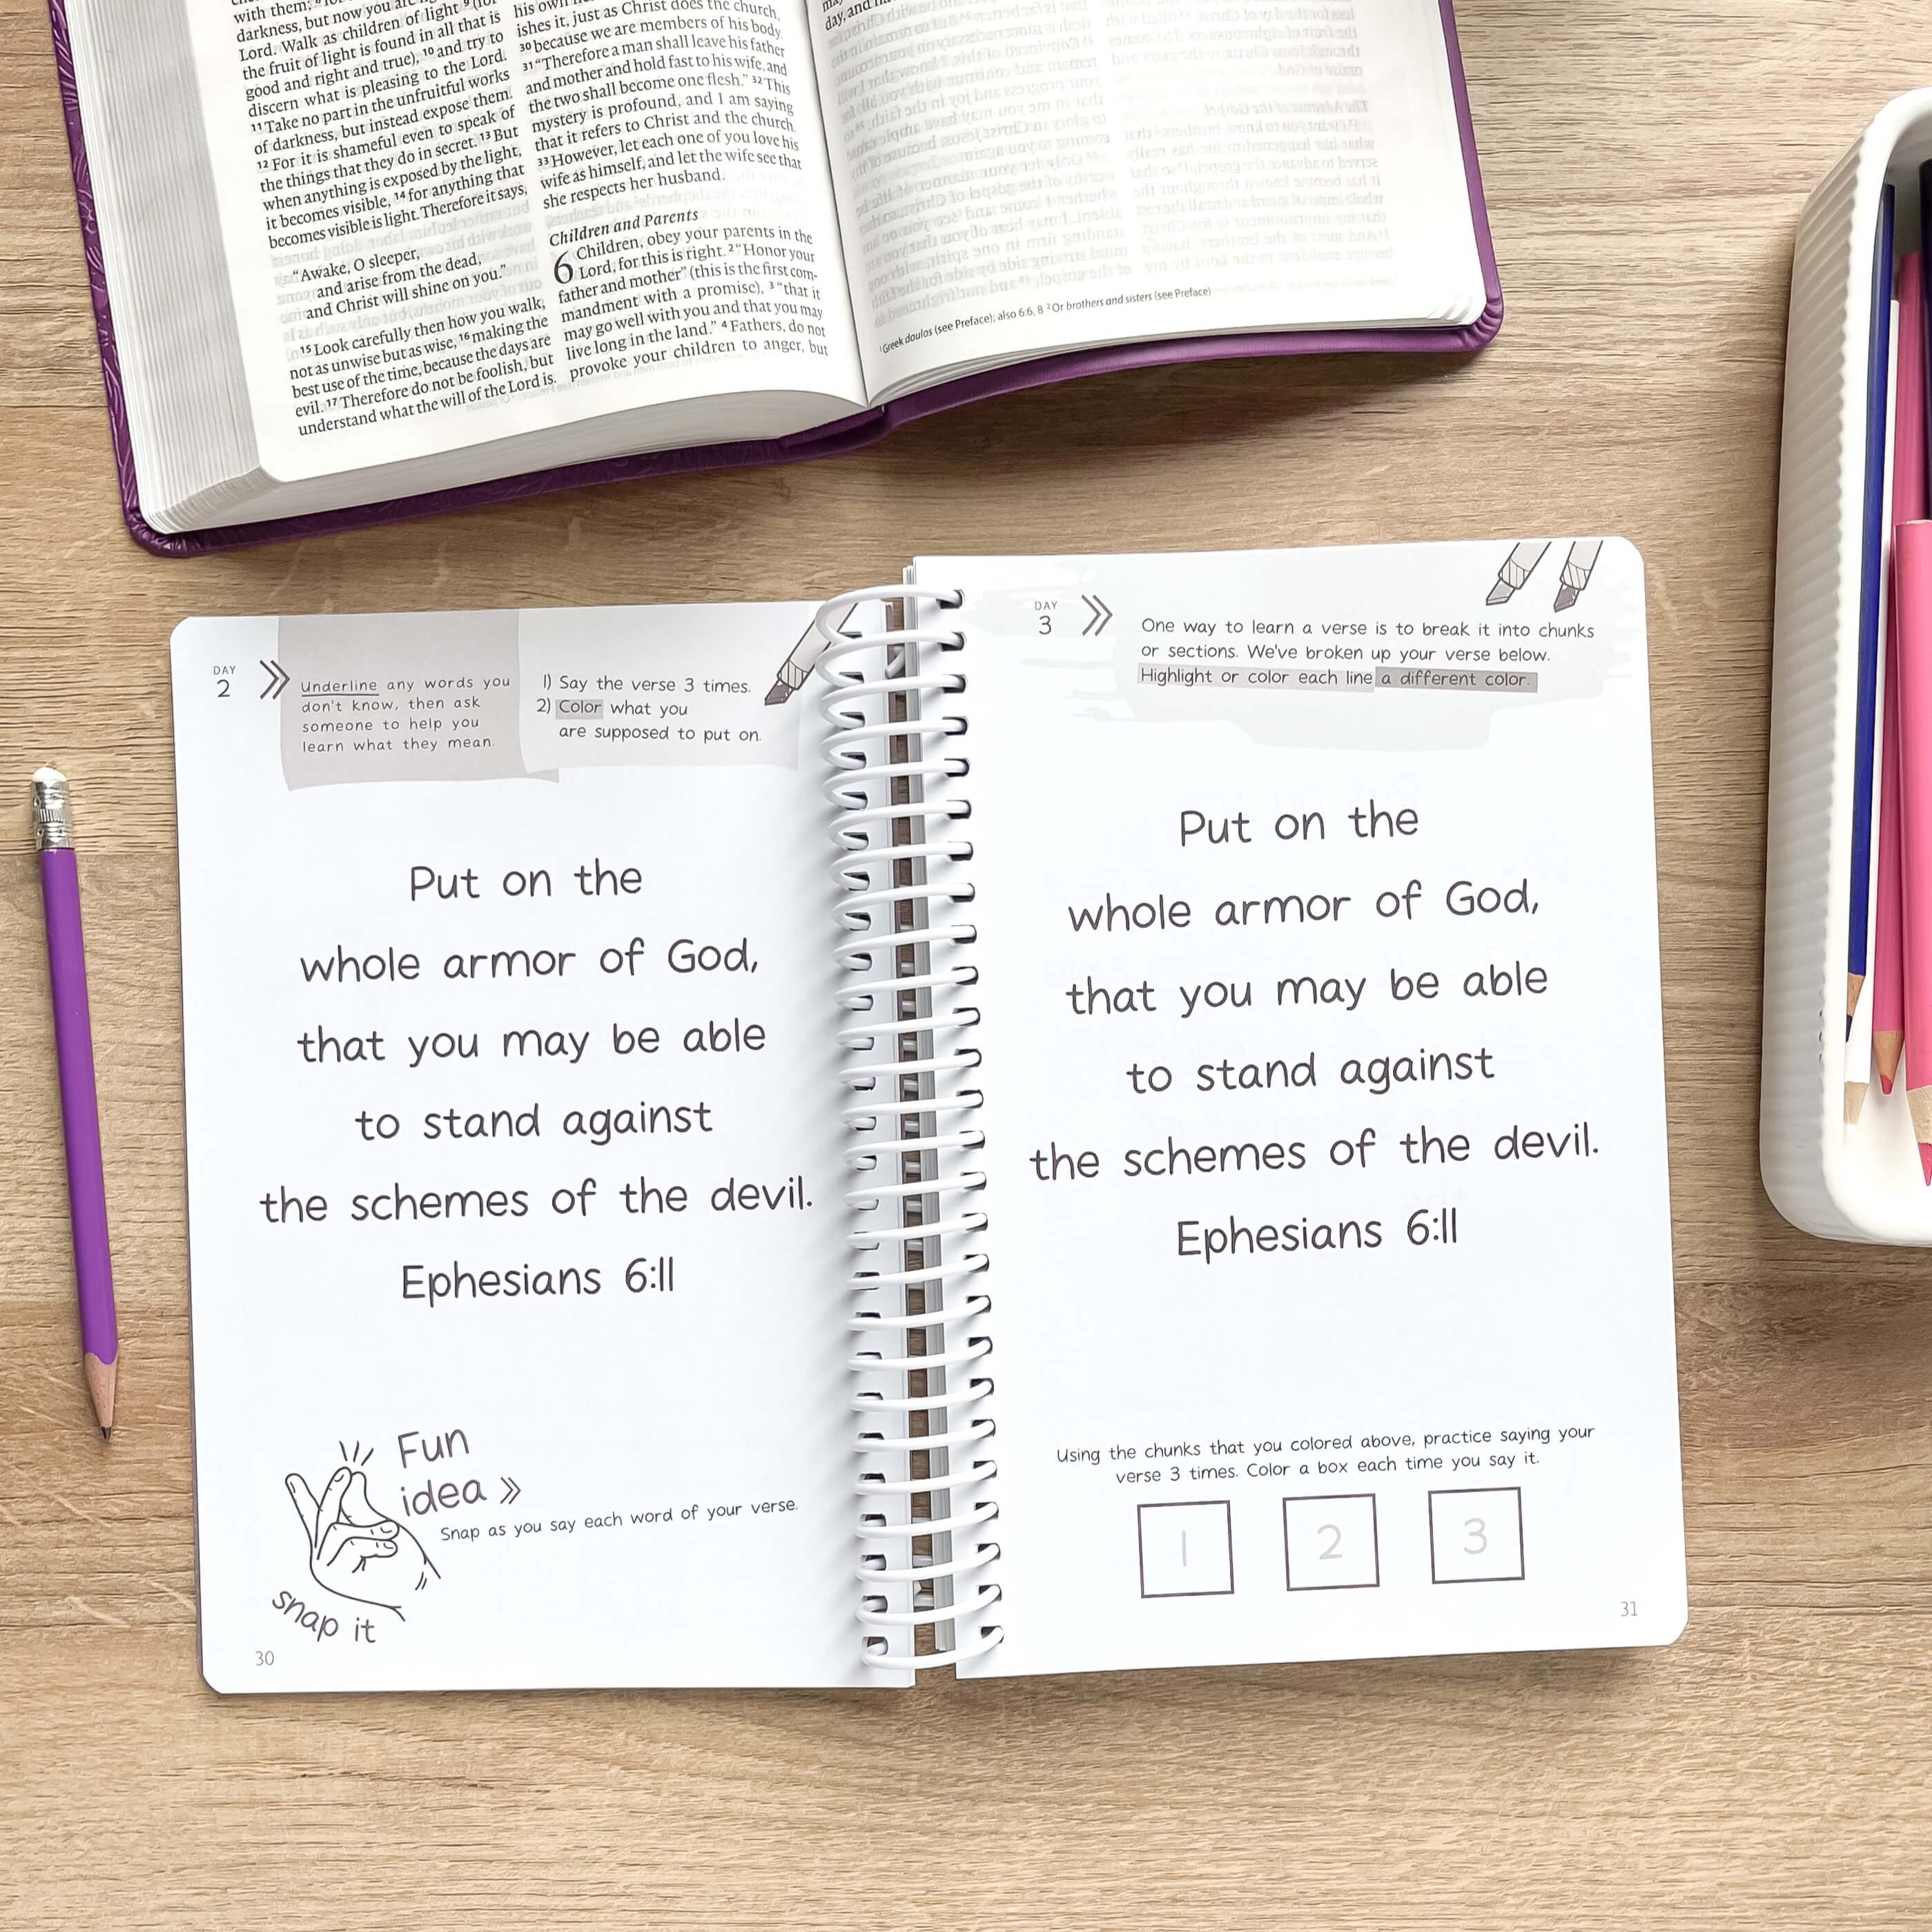 with them;
darkness, but now you are light
Lord. Walk as children of light ⁹
the fruit of light is found in all that is
good and right and true), ¹⁰ and try to
discern what is pleasing to the Lord.
¹¹ Take no part in the unfruitful works
of darkness, but instead expose them.
¹² For it is shameful even to speak of
the things that they do in secret. ¹³ But
when anything is exposed by the light,
it becomes visible, ¹⁴ for anything that
becomes visible is light. Therefore it says,
“Awake, O sleeper,
and arise from the dead,
and Christ will shine on you.”
¹⁵ Look carefully then how you walk,
not as unwise but as wise, ¹⁶ making the
best use of the time, because the days are
evil. ¹⁷ Therefore do not be foolish, but
understand what the will of the Lord is.
his own
ishes it, just as Christ does the church,
³⁰ because we are members of his body.
³¹ “Therefore a man shall leave his father
and mother and hold fast to his wife, and
the two shall become one flesh.” ³² This
mystery is profound, and I am saying
that it refers to Christ and the church.
³³ However, let each one of you love his
wife as himself, and let the wife see that
she respects her husband.
Children and Parents
6 Children, obey your parents in the
Lord, for this is right. ² “Honor your
father and mother” (this is the first com-
mandment with a promise), ³ “that it
may go well with you and that you may
live long in the land.” ⁴ Fathers, do not
provoke your children to anger, but
day, and
¹ Greek doulos (see Preface); also 6:6, 8 ² Or brothers and sisters (see Preface)
DAY
2
Underline any words you
don't know, then ask
someone to help you
learn what they mean.
1) Say the verse 3 times.
2) Color what you
are supposed to put on.
Put on the
whole armor of God,
that you may be able
to stand against
the schemes of the devil.
Ephesians 6:11
Fun
idea »
Snap as you say each word of your verse.
snap it
30
DAY
3
One way to learn a verse is to break it into chunks
or sections. We've broken up your verse below.
Highlight or color each line a different color.
Put on the
whole armor of God,
that you may be able
to stand against
the schemes of the devil.
Ephesians 6:11
Using the chunks that you colored above, practice saying your
verse 3 times. Color a box each time you say it.
1 2 3
31